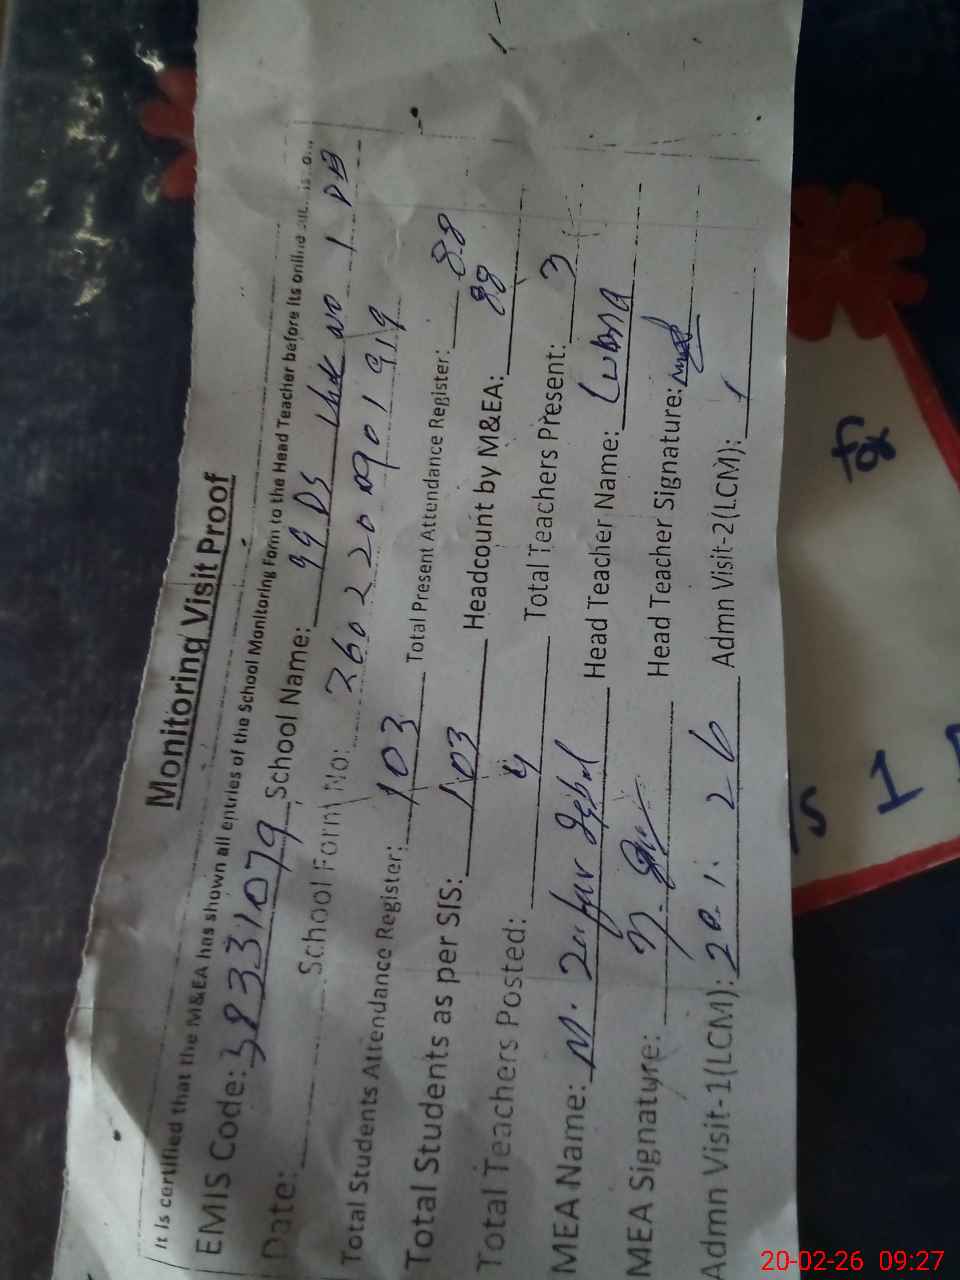 Monitoring Visit Proof
It is certified that the M&EA has shown all entries of the School Monitoring Form to the Head Teacher before its online
EMIS Code: 38331079 School Name: 99 DS No 1 DB
Date: School Form No:
Total Students Attendance Register: 103 Total Present Attendance Register: 88
Total Students as per SIS: 103 Headcount by M&EA: 88
Total Teachers Posted: 4 Total Teachers Present: 3
MEA Name: M. Zafar Iqbal Head Teacher Name: Lubna
MEA Signature: Head Teacher Signature:
Admn Visit-1(LCM): 20.1.26 Admn Visit-2(LCM): 1
for
s 1
20-02-26 09:27